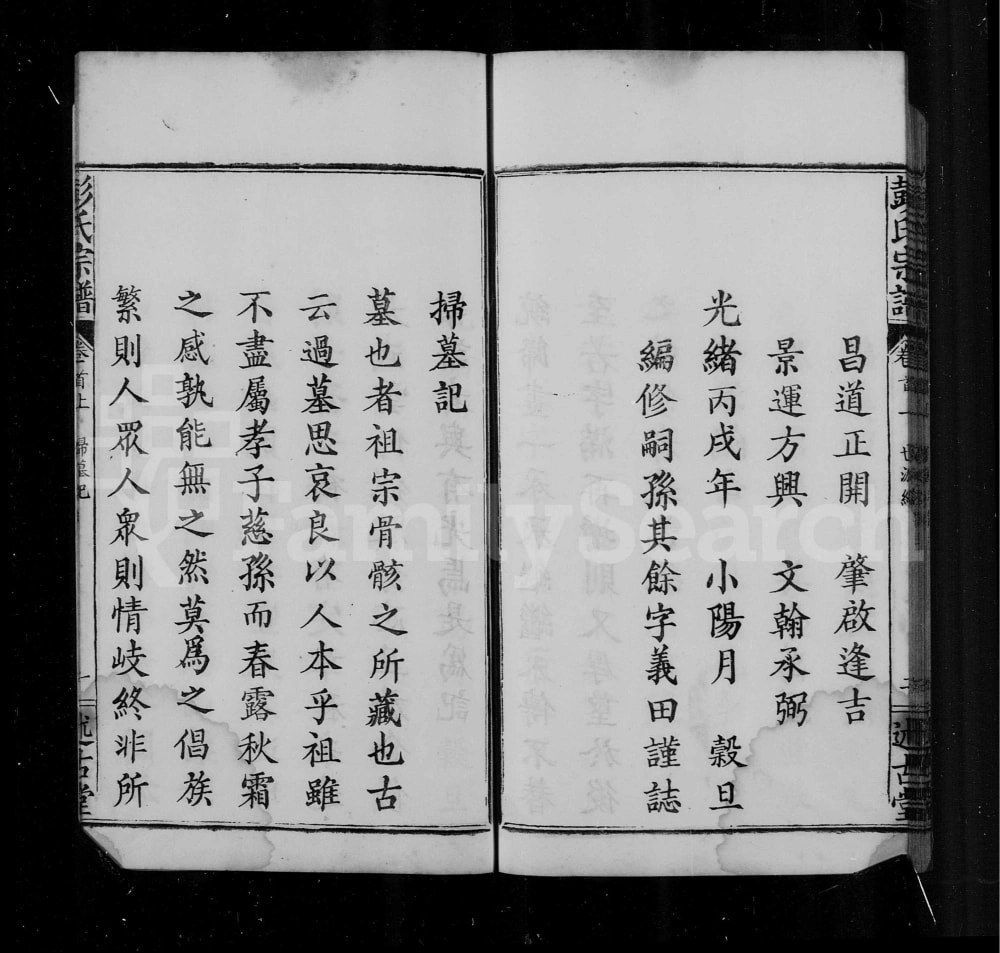 彭氏宗譜
卷首
述古堂
昌道正開 肇啟逢吉
景運方興 文翰承弼
光緒丙戌年 小陽月 穀旦
編修嗣孫其餘字義田謹誌
掃墓記
墓也者祖宗骨骸之所藏也古
云過墓思哀良以人本乎祖雖
不盡屬孝子慈孫而春露秋霜
之感孰能無之然莫爲之倡族
繁則人眾人衆則情岐終非所
彭氏宗譜
卷首上 掃墓記
一 述古堂
FamilySearch